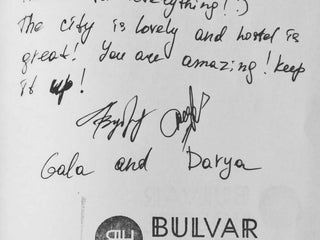 everything! :)
The city is lovely and hostel is
great! You are amazing! keep
it up!
Gala and Darya
BULVAR